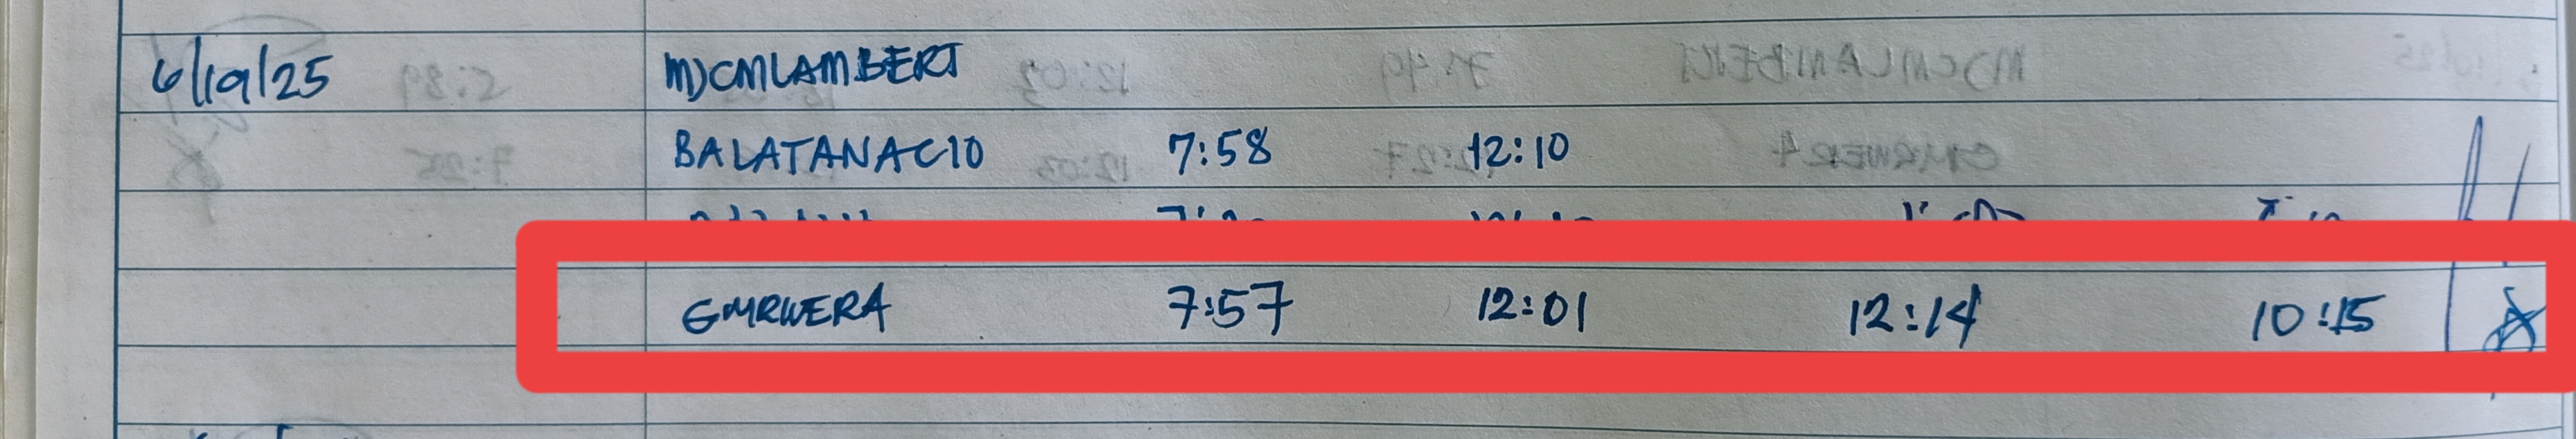 6/19/25 MJCMLAMBERT
BALATANACIO 7:58 12:10
GMRWERA 7:57 12:01 12:14 10:15